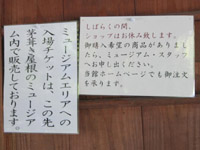 しばらくの間、
ショップはお休み致します。
御購入希望の商品がありまし
たら、ミュージアム・スタッフ
へお申し出ください。
当館ホームページでも御注文
を承ります。
ミュージアムエリアへの
入場チケットは、この先
「茅葺き屋根のミュージア
ム内で販売しております